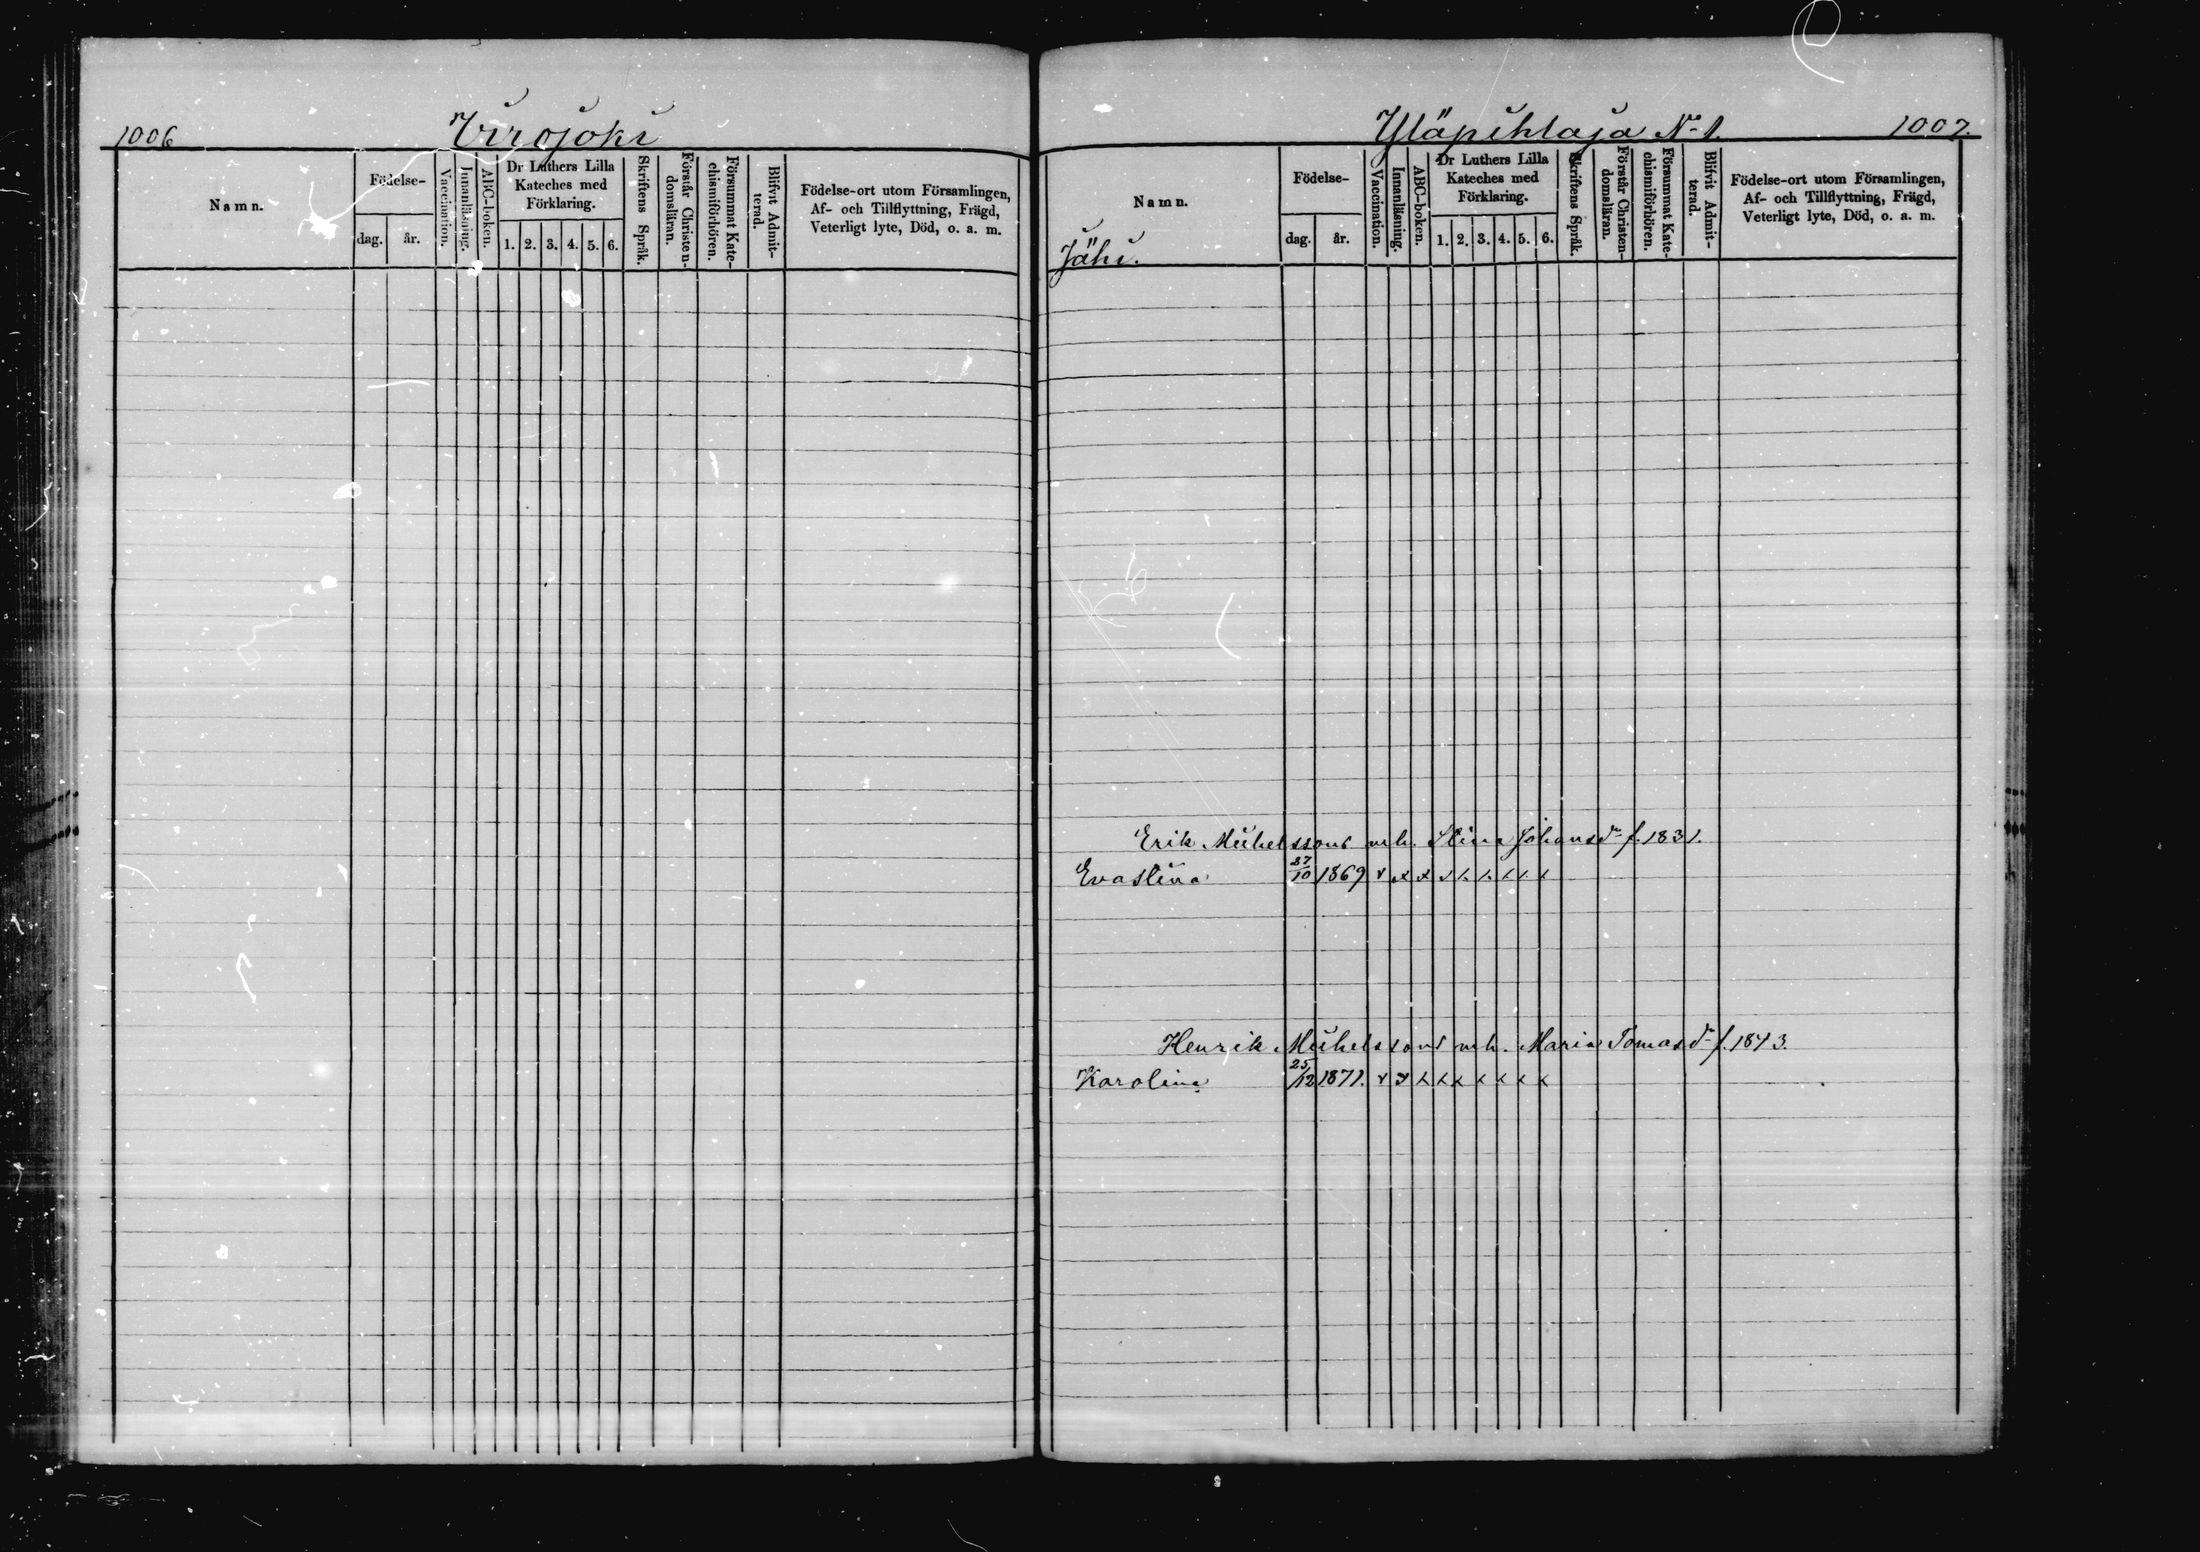 1006 Virojoki
Namn. Födelse- dag. år. Vaccination. Innanläsning. ABC-boken. Dr Luthers Lilla Kateches med Förklaring. 1. 2. 3. 4. 5. 6. Skriftens Språk. Förstår Christendomsläran. Försummat Katechismiförhören. Blifvit Admitterad. Födelse-ort utom Församlingen, Af- och Tillflyttning, Frägd, Veterligt lyte, Död, o. a. m.
Yläpihlaja No 1. 1007.
Namn. Födelse- dag. år. Vaccination. Innanläsning. ABC-boken. Dr Luthers Lilla Kateches med Förklaring. 1. 2. 3. 4. 5. 6. Skriftens Språk. Förstår Christendomsläran. Försummat Katechismiförhören. Blifvit Admitterad. Födelse-ort utom Församlingen, Af- och Tillflyttning, Frägd, Veterligt lyte, Död, o. a. m.
Jähi.
Erik Michelssons m. h. Stina Johansdr f. 1831.
Evastina 27/10 1869
Henrik Michelssons m. h. Maria Tomasdr f. 1843.
Karolina 25/12 1871.